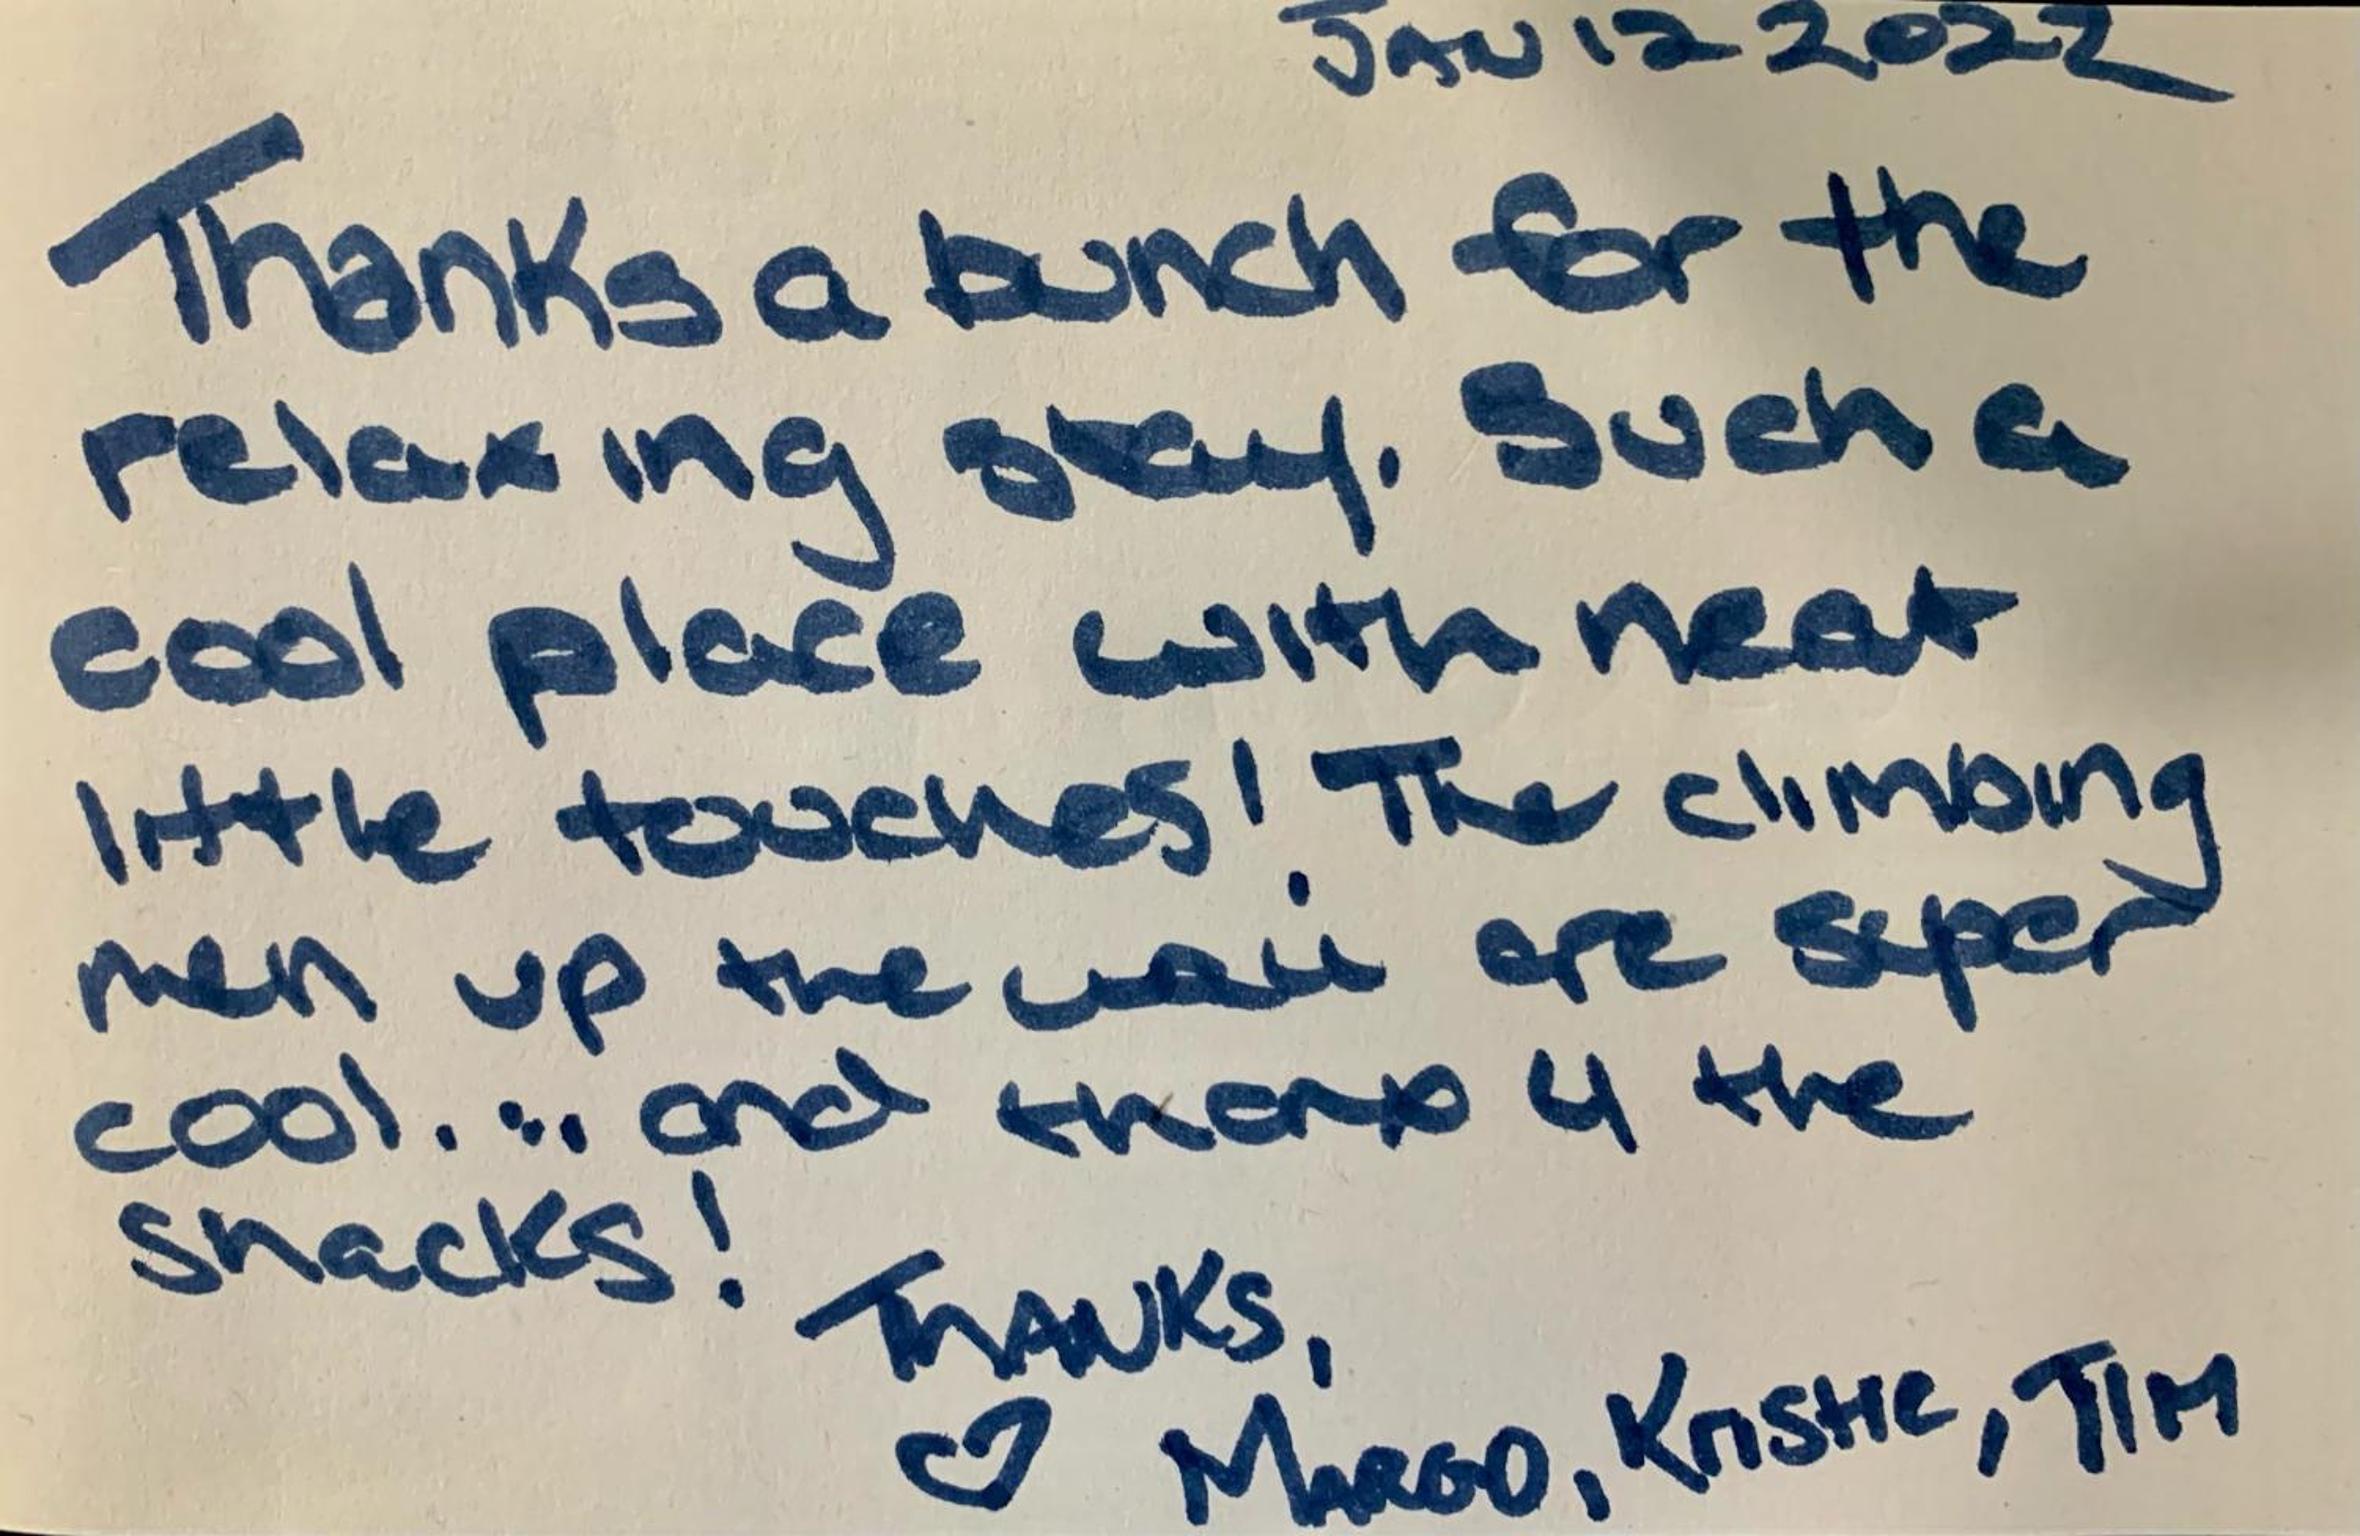 JAN 12 2022
Thanks a bunch for the
relaxing stay. Such a
cool place with neat
little touches! The climbing
men up the wall are super
cool.... and thanx 4 the
snacks!
THANKS,
♡ MARGO, Kristie, TIM